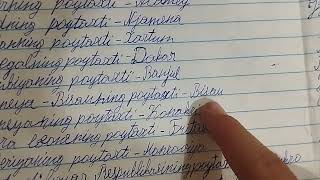 ning poytaxti - Niamey
ning poytaxti - Njamena
ning poytaxti - Xartum
egalning poytaxti - Dakar
biyaning poytaxti - Banjul
neya - Bisauning poytaxti - Bisau
neyaning poytaxti - Konakri
ra Leonening poytaxti - Fritaun
eriyaning poytaxti - Monroviya
Respublikasining poytaxti